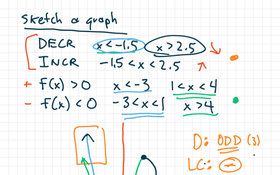 Sketch a graph
DECR x<-1.5, x>2.5
INCR -1.5<x<2.5
+ f(x)>0 x<-3 1<x<4
- f(x)<0 -3<x<1 x>4
D: ODD (3)
LC: -